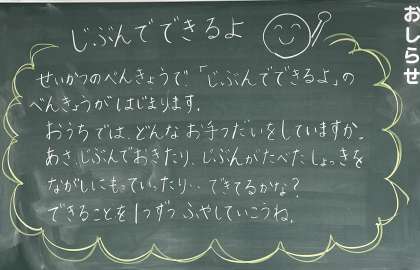 おしらせ
じぶんでできるよ
せいかつのべんきょうで「じぶんでできるよ」の
べんきょうがはじまります。
おうちでは、どんなお手つだいをしていますか。
あさ、じぶんでおきたり、じぶんがたべたしょっきを
ながしにもっていったり‥できてるかな?
できることを1つずつふやしていこうね。